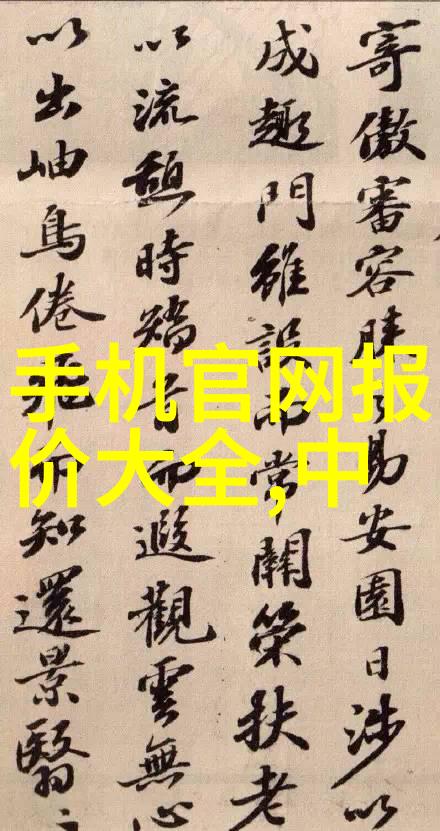 寄傲審容膝之易安園日涉以
成趣門雖設而常關策扶老
以流憩時矯首而遐觀雲無心
以出岫鳥倦飛而知還景翳
手机官网报
价大全,中